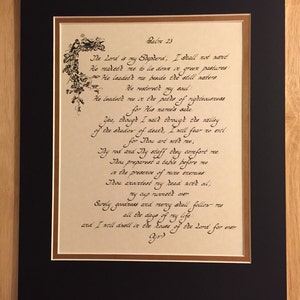 Psalm 23
The Lord is my Shepherd; I shall not want
He maketh me to lie down in green pastures
He leadeth me beside the still waters
He restoreth my soul
He leadeth me in the paths of righteousness
for His name's sake
Yea, though I walk through the valley
of the shadow of death, I will fear no evil
for Thou art with me;
Thy rod and Thy staff they comfort me
Thou preparest a table before me
in the presence of mine enemies
Thou anointest my head with oil;
my cup runneth over
Surely goodness and mercy shall follow me
all the days of my life
and I will dwell in the house of the Lord for ever